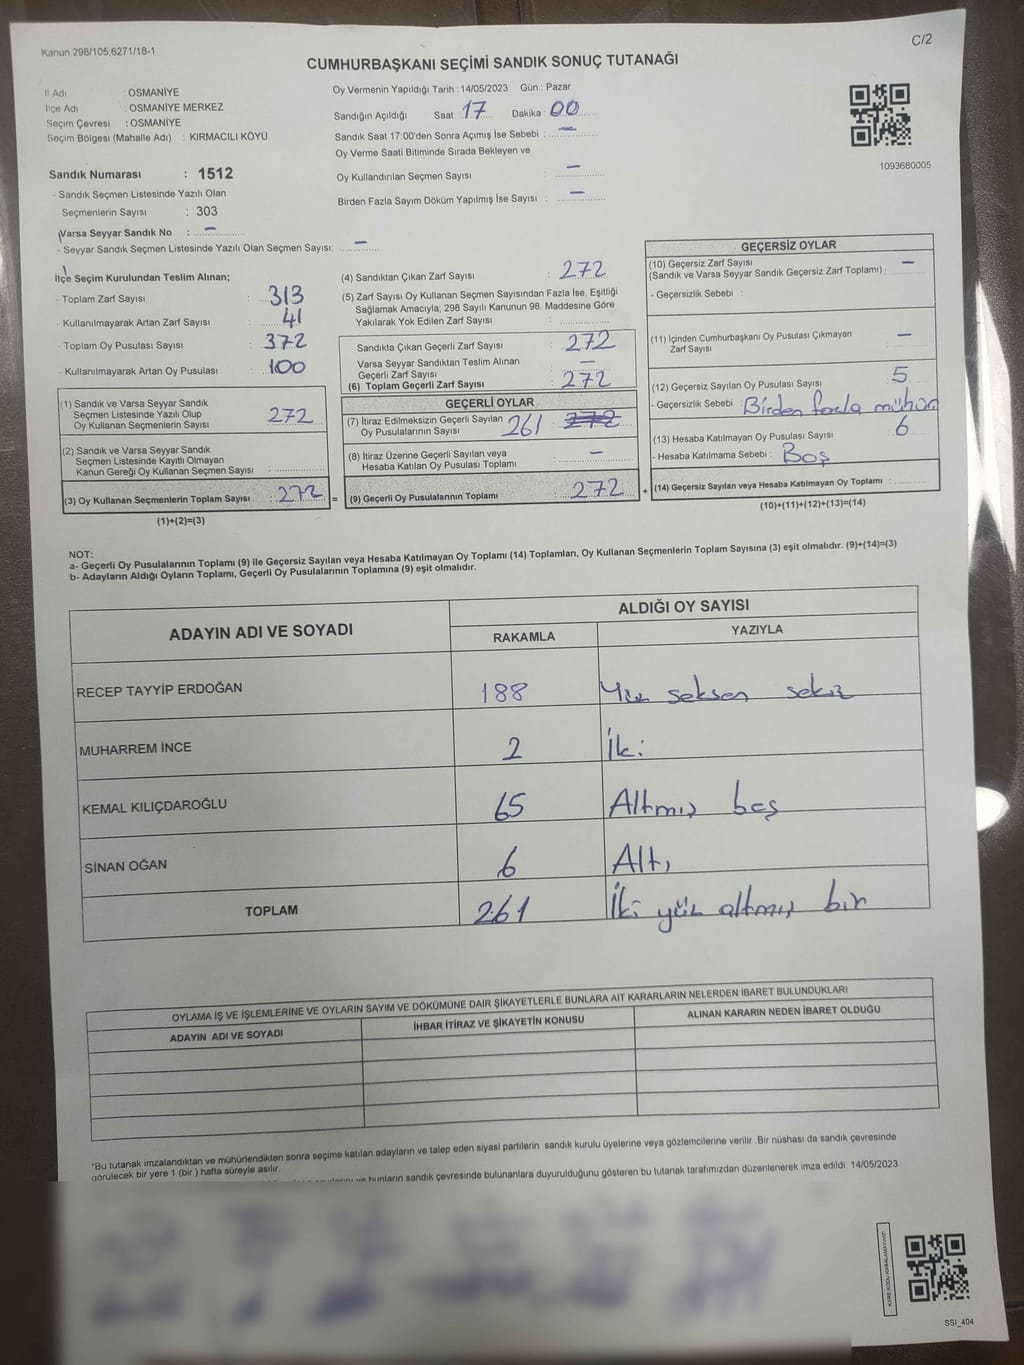 Kanun.298/105;6271/18-1
C/2
CUMHURBAŞKANI SEÇİMİ SANDIK SONUÇ TUTANAĞI
İl Adı : OSMANİYE
İlçe Adı : OSMANİYE MERKEZ
Seçim Çevresi : OSMANİYE
Seçim Bölgesi (Mahalle Adı) : KIRMACILI KÖYÜ
Oy Vermenin Yapıldığı Tarih : 14/05/2023 Gün : Pazar
Sandığın Açıldığı Saat : 17 Dakika : 00
Sandık Saat 17:00'den Sonra Açımış İse Sebebi : —
Oy Verme Saati Bitiminde Sırada Bekleyen ve
Oy Kullandırılan Seçmen Sayısı : —
Birden Fazla Sayım Döküm Yapılmış İse Sayısı : —
1093680005
Sandık Numarası : 1512
- Sandık Seçmen Listesinde Yazılı Olan
Seçmenlerin Sayısı : 303
Varsa Seyyar Sandık No : —
- Seyyar Sandık Seçmen Listesinde Yazılı Olan Seçmen Sayısı: —
İlçe Seçim Kurulundan Teslim Alınan;
- Toplam Zarf Sayısı : 313
- Kullanılmayarak Artan Zarf Sayısı : 41
- Toplam Oy Pusulası Sayısı : 372
- Kullanılmayarak Artan Oy Pusulası : 100
(1) Sandık ve Varsa Seyyar Sandık
Seçmen Listesinde Yazılı Olup
Oy Kullanan Seçmenlerin Sayısı : 272
(2) Sandık ve Varsa Seyyar Sandık
Seçmen Listesinde Kayıtlı Olmayan
Kanun Gereği Oy Kullanan Seçmen Sayısı :
(3) Oy Kullanan Seçmenlerin Toplam Sayısı : 272 =
(1)+(2)=(3)
(4) Sandıktan Çıkan Zarf Sayısı : 272
(5) Zarf Sayısı Oy Kullanan Seçmen Sayısından Fazla İse, Eşitliği
Sağlamak Amacıyla, 298 Sayılı Kanunun 98. Maddesine Göre
Yakılarak Yok Edilen Zarf Sayısı :
Sandıkta Çıkan Geçerli Zarf Sayısı : 272
Varsa Seyyar Sandıktan Teslim Alınan
Geçerli Zarf Sayısı : —
(6) Toplam Geçerli Zarf Sayısı : 272
GEÇERLİ OYLAR
(7) İtiraz Edilmeksizin Geçerli Sayılan
Oy Pusulalarının Sayısı 261 272
(8) İtiraz Üzerine Geçerli Sayılan veya
Hesaba Katılan Oy Pusulası Toplamı : —
(9) Geçerli Oy Pusulalarının Toplamı : 272 +
GEÇERSİZ OYLAR
(10) Geçersiz Zarf Sayısı
(Sandık ve Varsa Seyyar Sandık Geçersiz Zarf Toplamı) : —
- Geçersizlik Sebebi :
(11) İçinden Cumhurbaşkanı Oy Pusulası Çıkmayan
Zarf Sayısı : —
(12) Geçersiz Sayılan Oy Pusulası Sayısı : 5
- Geçersizlik Sebebi : Birden fazla mühür
(13) Hesaba Katılmayan Oy Pusulası Sayısı : 6
- Hesaba Katılmama Sebebi : Boş
(14) Geçersiz Sayılan veya Hesaba Katılmayan Oy Toplamı :
(10)+(11)+(12)+(13)=(14)
NOT:
a- Geçerli Oy Pusulalarının Toplamı (9) ile Geçersiz Sayılan veya Hesaba Katılmayan Oy Toplamı (14) Toplamları, Oy Kullanan Seçmenlerin Toplam Sayısına (3) eşit olmalıdır. (9)+(14)=(3)
b- Adayların Aldığı Oyların Toplamı, Geçerli Oy Pusulalarının Toplamına (9) eşit olmalıdır.
ADAYIN ADI VE SOYADI ALDIĞI OY SAYISI
RAKAMLA YAZIYLA
RECEP TAYYİP ERDOĞAN 188 Yüz seksen sekiz
MUHARREM İNCE 2 İki
KEMAL KILIÇDAROĞLU 65 Altmış beş
SİNAN OĞAN 6 Altı
TOPLAM 261 İki yüz altmış bir
OYLAMA İŞ VE İŞLEMLERİNE VE OYLARIN SAYIM VE DÖKÜMÜNE DAİR ŞİKAYETLERLE BUNLARA AİT KARARLARIN NELERDEN İBARET BULUNDUKLARI
ADAYIN ADI VE SOYADI İHBAR İTİRAZ VE ŞİKAYETİN KONUSU ALINAN KARARIN NEDEN İBARET OLDUĞU
*Bu tutanak imzalandıktan ve mühürlendikten sonra seçime katılan adayların ve talep eden siyasi partilerin sandık kurulu üyelerine veya gözlemcilerine verilir. Bir nüshası da sandık çevresinde
görülecek bir yere 1 (bir) hafta süreyle asılır.
bunların sandık çevresinde bulunanlara duyurulduğunu gösteren bu tutanak tarafımızdan düzenlenerek imza edildi. 14/05/2023
KARE KODU KARALAMAYINIZ!
SSI_404